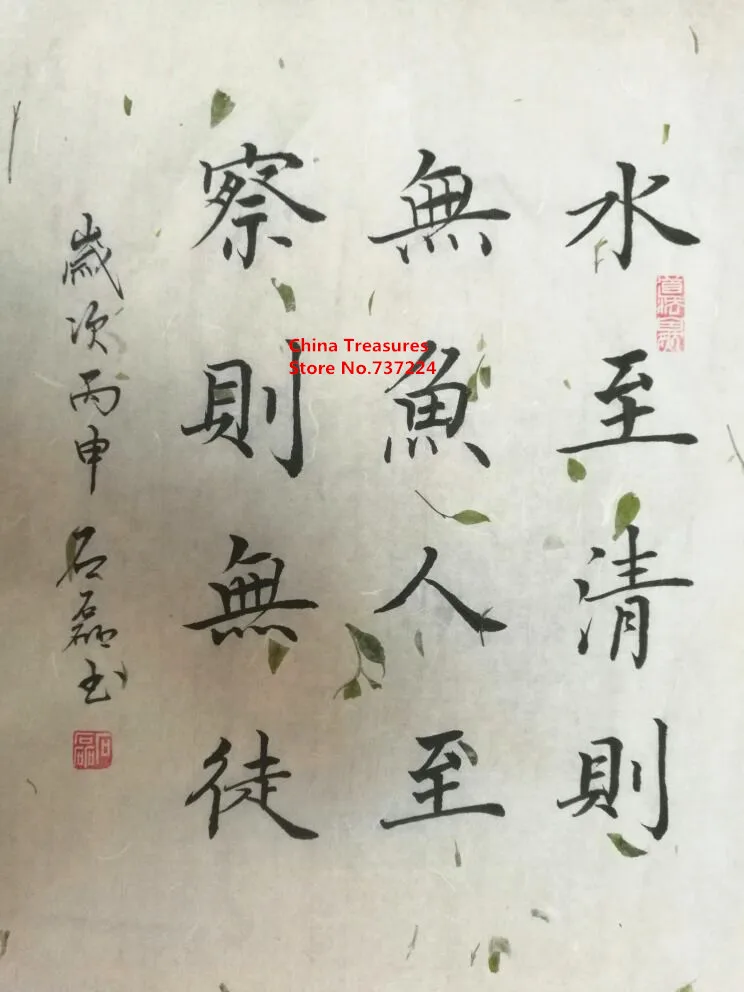 水至清則
無魚人至
察則無徒
歲次丙申 石磊书
石磊
China Treasures
Store No.737224